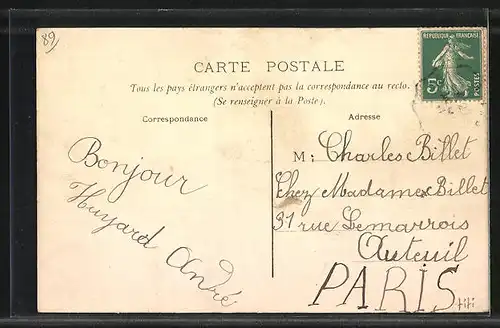 89
RÉPUBLIQUE FRANÇAISE
5c
POSTES
CARTE POSTALE
Tous les pays étrangers n'acceptent pas la correspondance au recto.
(Se renseigner à la Poste).
Correspondance
Adresse
Bonjour
Huyard André
M: Charles Billet
Chez Madame Billet
31 rue Lemarrois
Auteuil
PARIS
titi